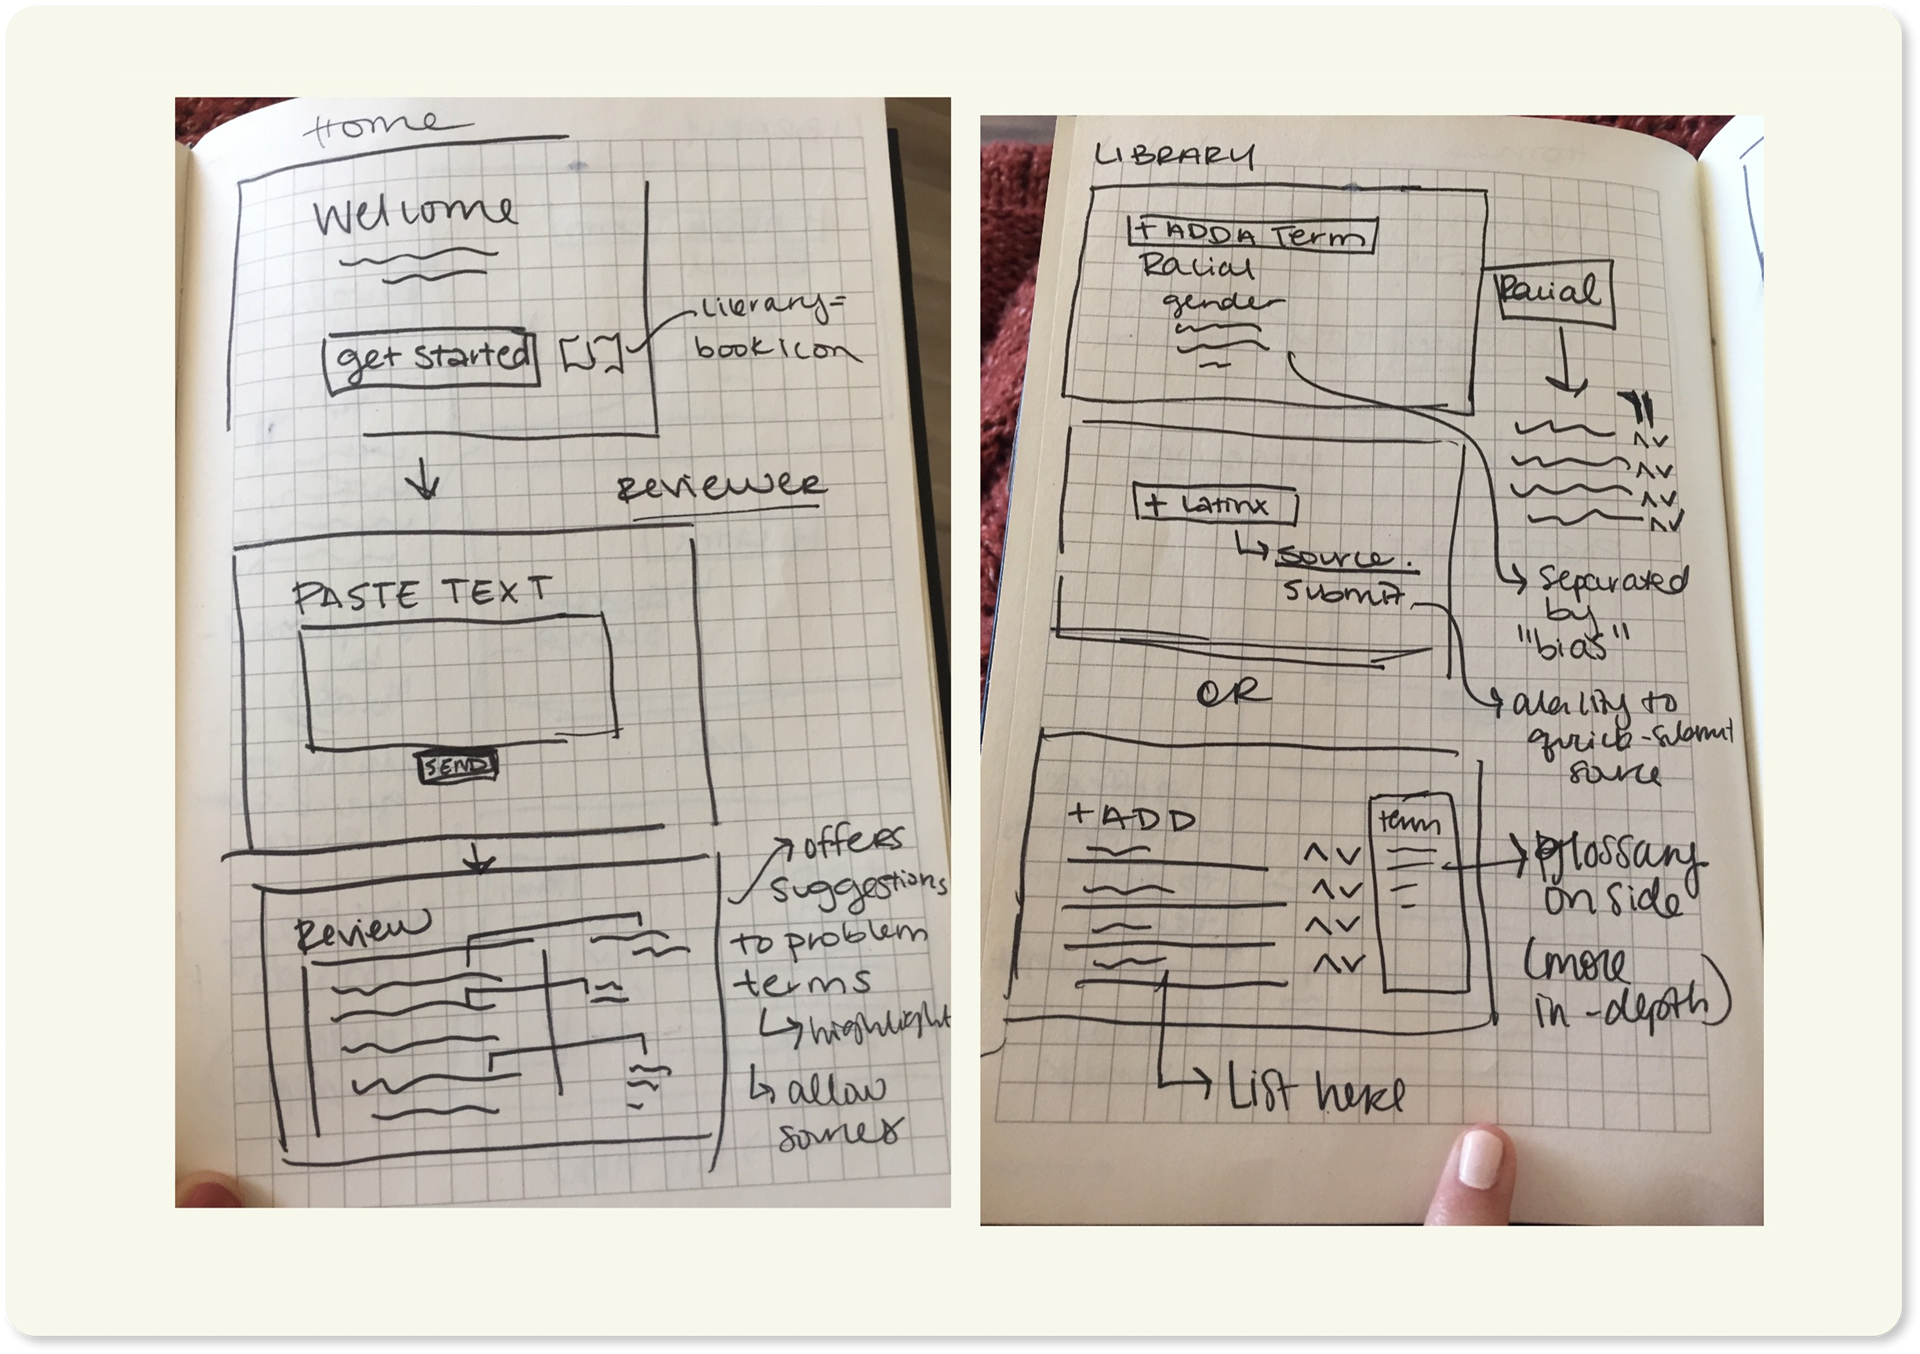 Home
Welcome
get started
Library=
book icon
Reviewer
PASTE TEXT
SEND
Review
offers
suggestions
to problem
terms
highlight
allow
LIBRARY
+ ADD A Term
Racial
gender
Racial
+ Latinx
source.
submit
separated
by
"bias"
OR
ability to
quick-submit
source
+ADD
term
glossary
on side
(more
in-depth)
List here